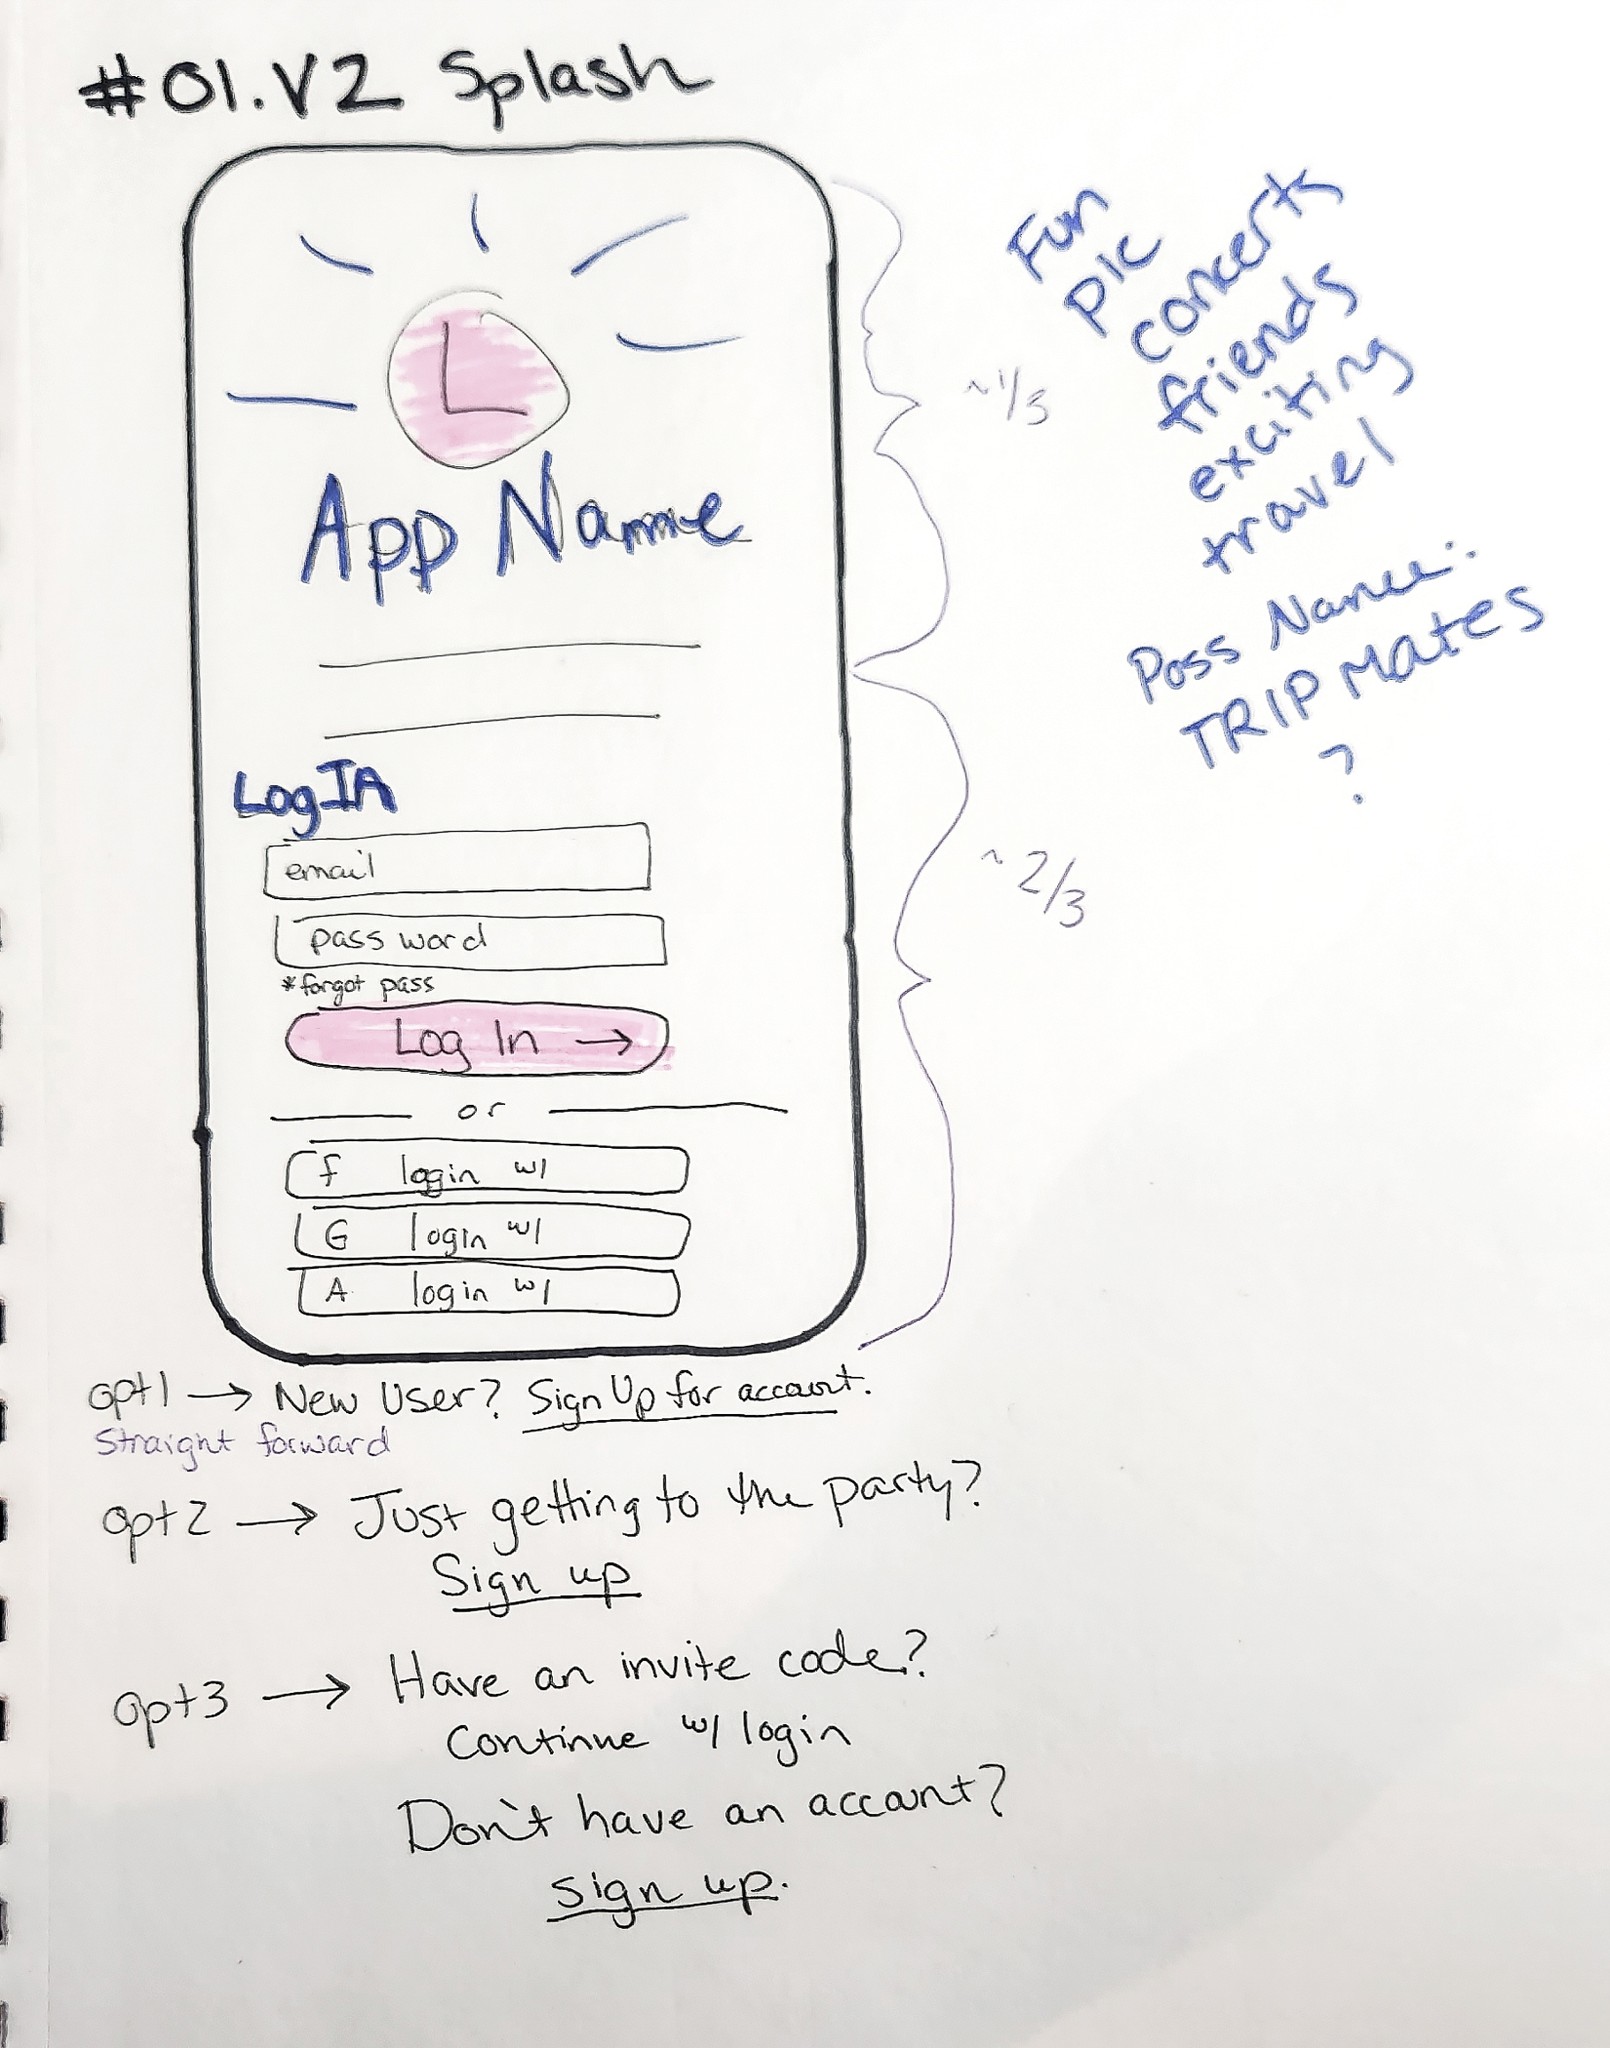 #01.V2 Splash
L
App Name
LogIn
email
password
*forgot pass
Log In →
or
f login w/
G login w/
A login w/
Fun
pic
concerts
friends
exciting
travel
~1/3
Poss Name:
TRIP MATES
?
~2/3
opt1 → New User? Sign Up for account.
Straight forward
opt2 → Just getting to the party?
Sign up
opt3 → Have an invite code?
Continue w/ login
Don't have an account?
sign up.